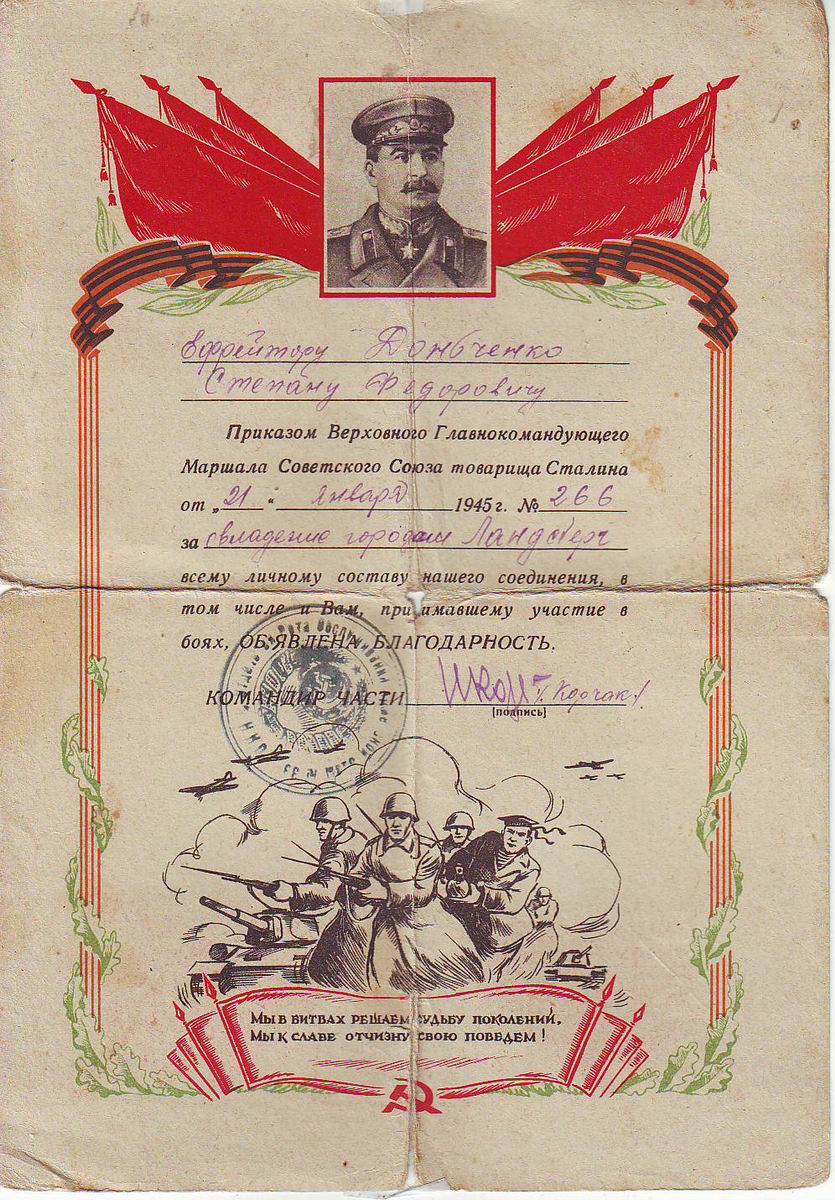 Ефрейтору Донбченко
Степану Федоровичу
Приказом Верховного Главнокомандующего
Маршала Советского Союза товарища Сталина
от „21“ января 1945 г. № 266
за овладение городам Ландсберг
всему личному составу нашего соединения, в
том числе и Вам, принимавшему участие в
боях, ОБ'ЯВЛЕНА БЛАГОДАРНОСТЬ.
КОМАНДИР ЧАСТИ /Корчак/
[подпись]
МЫ В БИТВАХ РЕШАЕМ СУДЬБУ ПОКОЛЕНИЙ,
МЫ К СЛАВЕ ОТЧИЗНУ СВОЮ ПОВЕДЕМ!